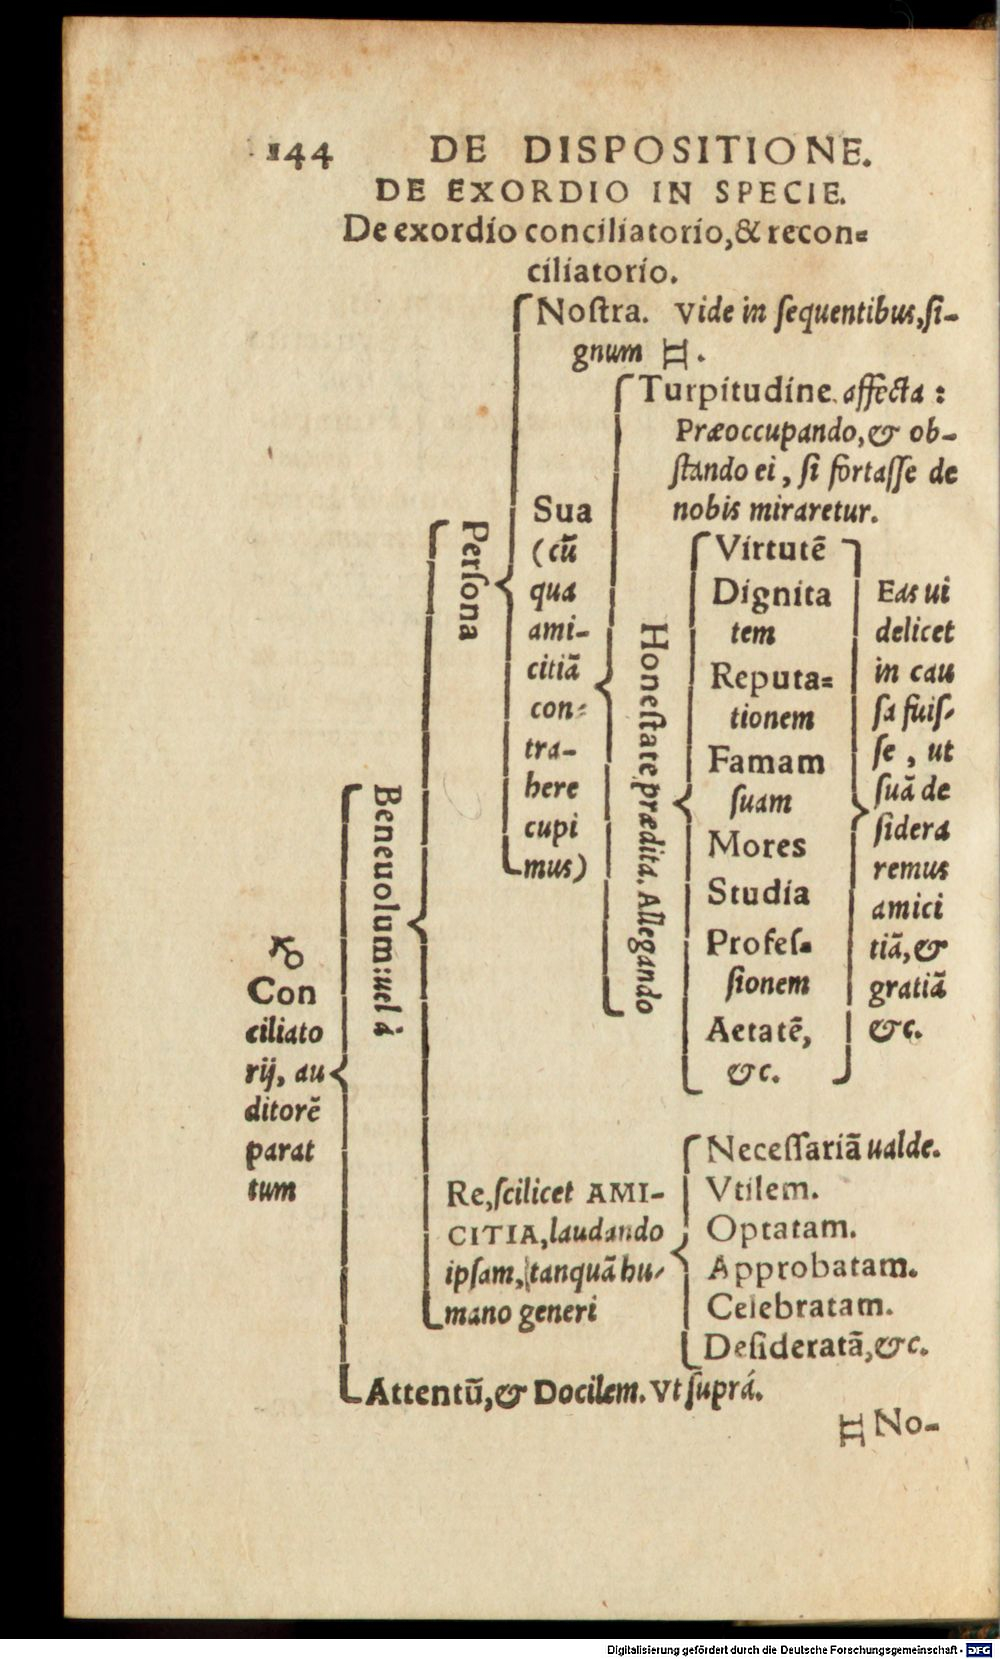 144 DE DISPOSITIONE.
DE EXORDIO IN SPECIE.
De exordio conciliatorio, & recon=
ciliatorio.
♂
Con
ciliato
rij, au
ditorē
parat
tum
Beneuolum: uel à
Persona
Nostra. Vide in sequentibus, si-
gnum ♊.
Sua
(cū
qua
ami-
citiā
con=
tra-
here
cupi
mus)
Turpitudine affecta:
Præoccupando, & ob-
stando ei, si fortasse de
nobis miraretur.
Honestate prædita. Allegando
Virtutē
Dignita
tem
Reputa=
tionem
Famam
suam
Mores
Studia
Profes-
sionem
Aetatē,
&c.
Eas ui
delicet
in cau
sa fuis-
se, ut
suā de
sidera
remus
amici
tiā, &
gratiā
&c.
Re, scilicet AMI-
CITIA, laudando
ipsam, tanquā hu-
mano generi
Necessariā ualde.
Vtilem.
Optatam.
Approbatam.
Celebratam.
Desideratā, &c.
Attentū, & Docilem. Vt suprá.
♊ No-
Digitalisierung gefördert durch die Deutsche Forschungsgemeinschaft - DFG